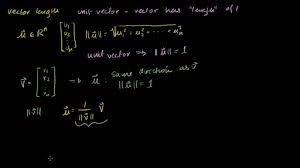 vector length    unit vector - vector has "length" of 1
û ∈ ℝⁿ  [u₁ u₂ ⋮ uₙ]  ||û|| = √(u₁² + u₂² + ⋯ + uₙ²)
unit vector ⇒ ||û|| = 1
v⃗ = [v₁ v₂ ⋮ vₙ] → û : same direction as v⃗
||û|| = 1
||v⃗||    û = 1/||v⃗|| v⃗